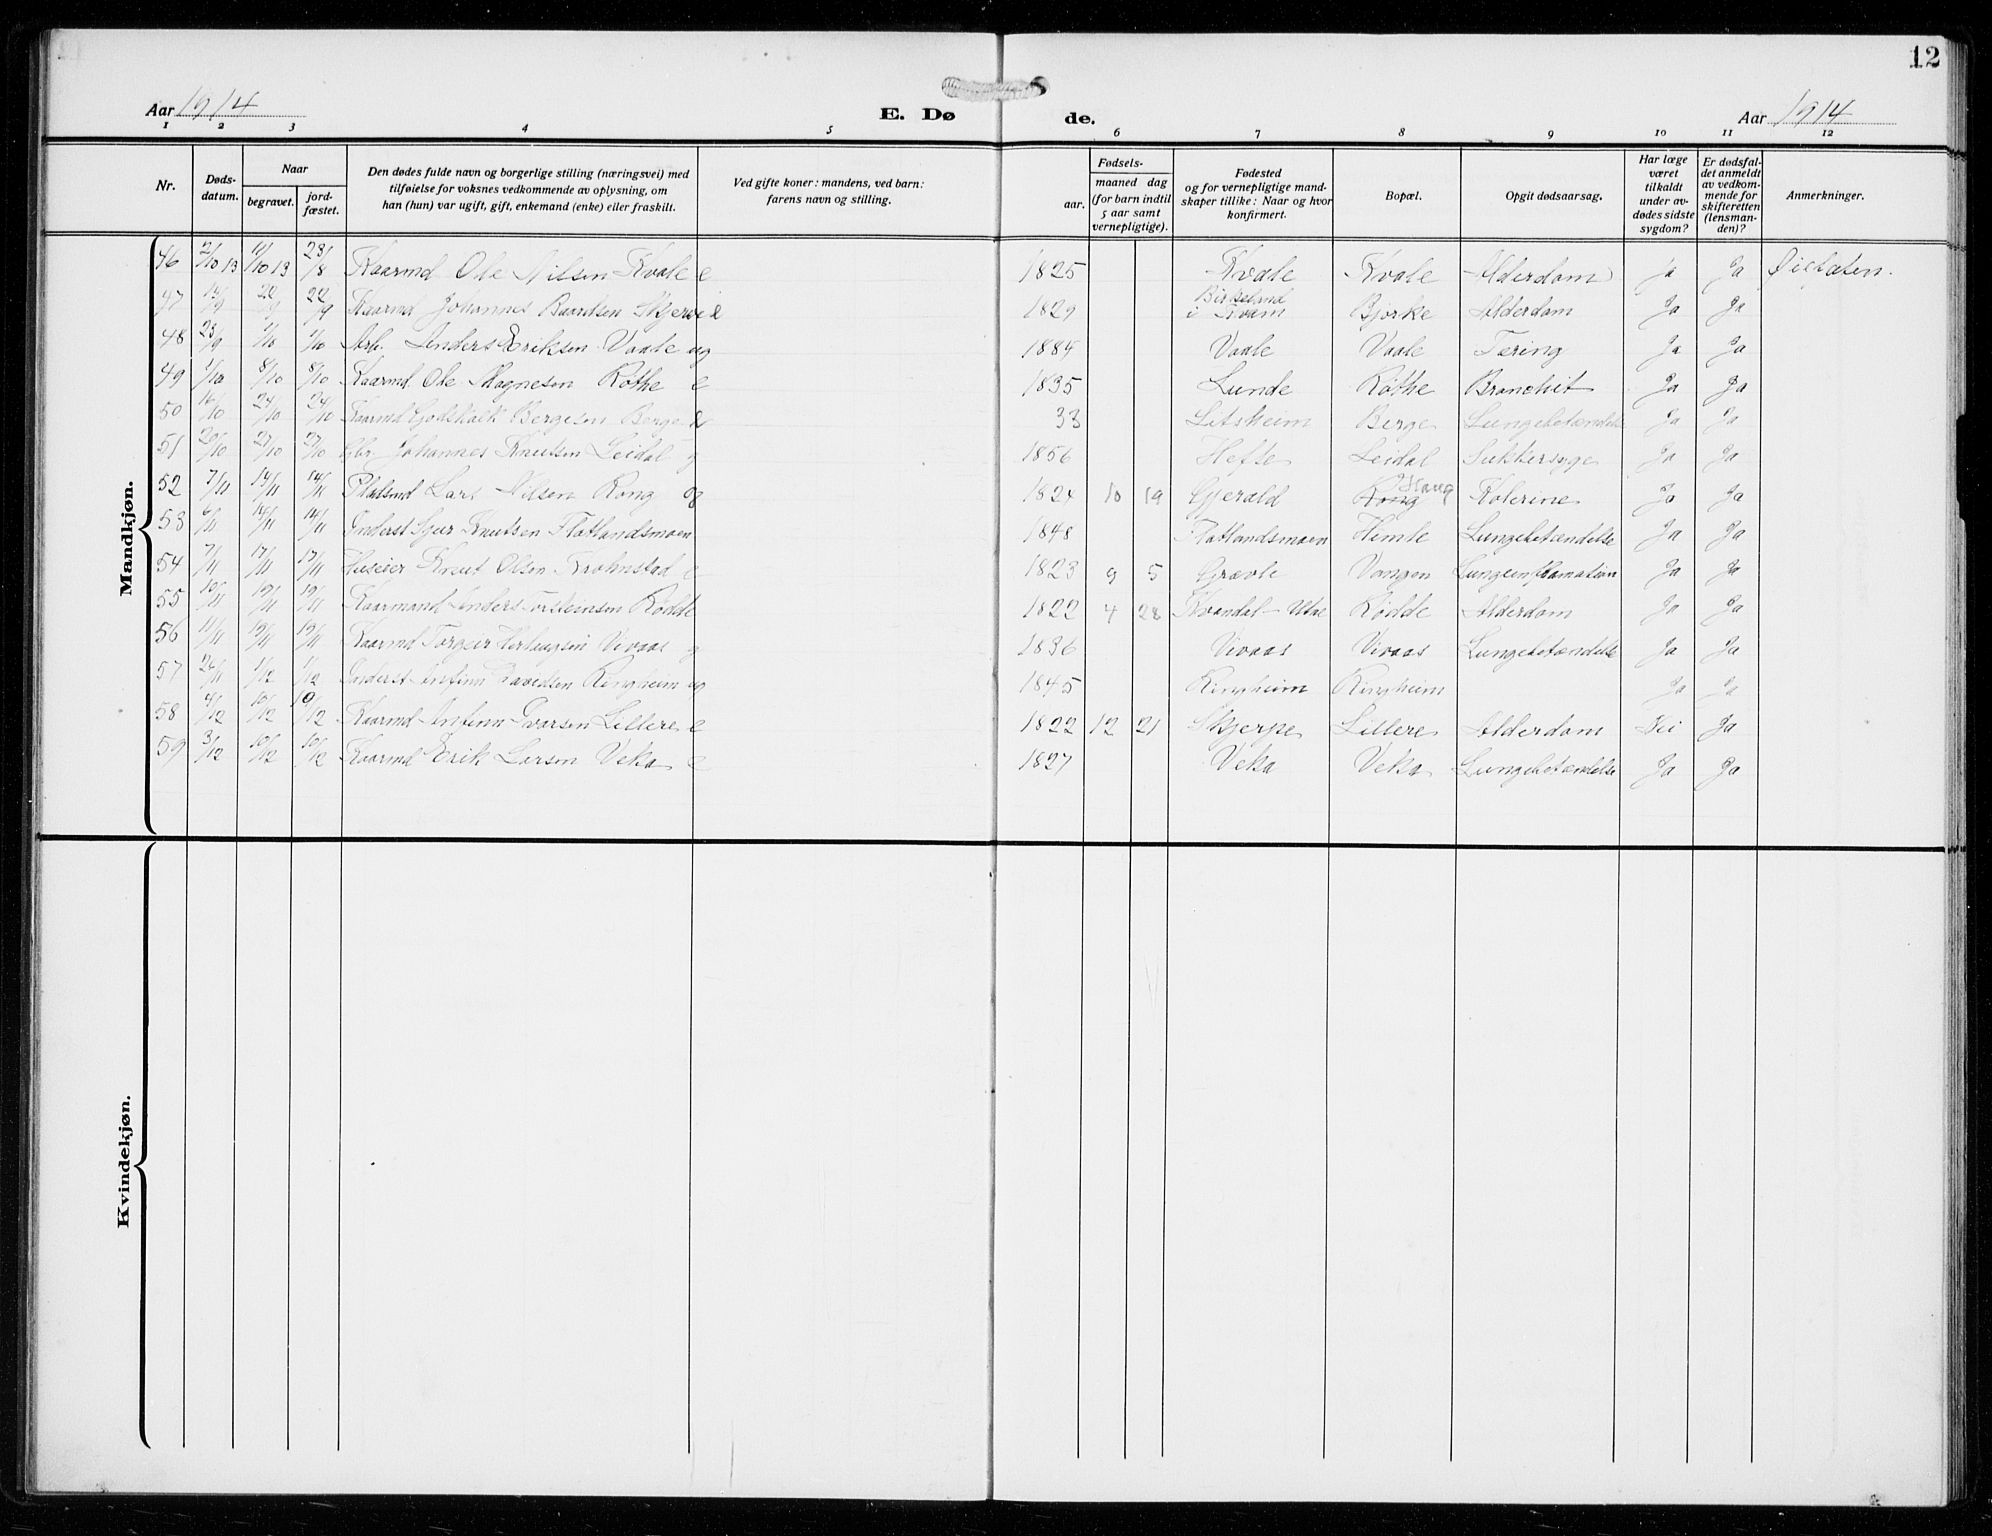 12
Aar 1914 E. Dø de. Aar 1914
1 2 3 4 5 6 7 8 9 10 11 12
Nr. Døds-datum. Naar begravet. jord-fæstet. Den dødes fulde navn og borgerlige stilling (næringsvei) med tilføielse for voksnes vedkommende av oplysning, om han (hun) var ugift, gift, enkemand (enke) eller fraskilt. Ved gifte koner: mandens, ved barn: farens navn og stilling. Fødsels- aar. maaned dag (for barn indtil 5 aar samt vernepligtige). Fødested og for vernepligtige mand-skaper tillike: Naar og hvor konfirmert. Bopæl. Opgit dødsaarsag. Har læge været tilkaldt under av-dødes sidste sygdom? Er dødsfal-det anmeldt av vedkom-mende for skifteretten (lensman-den)? Anmerkninger.
Mandkjøn.
46 2/10 13 11/10 13 23/8 Kaarmd Ole Nilsen Kvale e 1825 Kvale Kvale Alderdom Ja Ja
47 22/9 Kaarmd Johannes Baardsen Skjervei e 1829 Birkeland i Kvam Bjørke Alderdom Ja Ja
48 1/10 1/10 Arb. Anders Eriksen Vaale ug 1884 Vaale Vaale Tæring Ja Ja
49 1/10 8/10 8/10 Kaarmd Ole Magnesen Røthe e 1835 Lunde Røthe Bronchit Ja Ja
50 24/10 24/10 Kaarmd Godskalk Bergesen Berge 33 Litsheim Berge Lungebetændelse Ja Ja
51 20/10 27/10 27/10 Gbr. Johannes Knutsen Leidal g 1856 Hefte Leidal Sukkersyge Ja Ja
52 7/11 14/11 14/11 Pladsmd Lars Nilsen Rong 1824 10 19 Gjerald Rong Kolerine Ja Ja
53 6/11 14/11 14/11 Inderst Sjur Knutsen Flatlandsmoen 1848 Flatlandsmoen Himle Lungebetændelse Ja Ja
54 7/11 17/11 17/11 Huseier Knut Olsen Krohnstad e 1823 9 5 Grævle Vangen Lungeinflamation Ja Ja
55 10/11 19/11 19/11 Kaarmand Anders Torsteinsen Rødde 1822 4 28 Kvandal Rødde Alderdom Ja Ja
56 11/11 19/11 19/11 Kaarmd Torgeir Herlaugsen Vivaas g 1836 Vivaas Vivaas Lungebetændelse Ja Ja
57 24/11 1/12 1/12 Inderst Anfinn Davidsen Ringheim ug 1845 Ringheim Ringheim Ja Ja
58 4/12 10/12 10/12 Kaarmd Anfinn Ivarsen Lillere e 1822 12 21 Skjerpe Lillere Alderdom Nei Ja
59 3/12 10/12 10/12 Kaarmd Erik Larsen Veka e 1827 Veka Veka Lungebetændelse Ja Ja
Kvindekjøn.